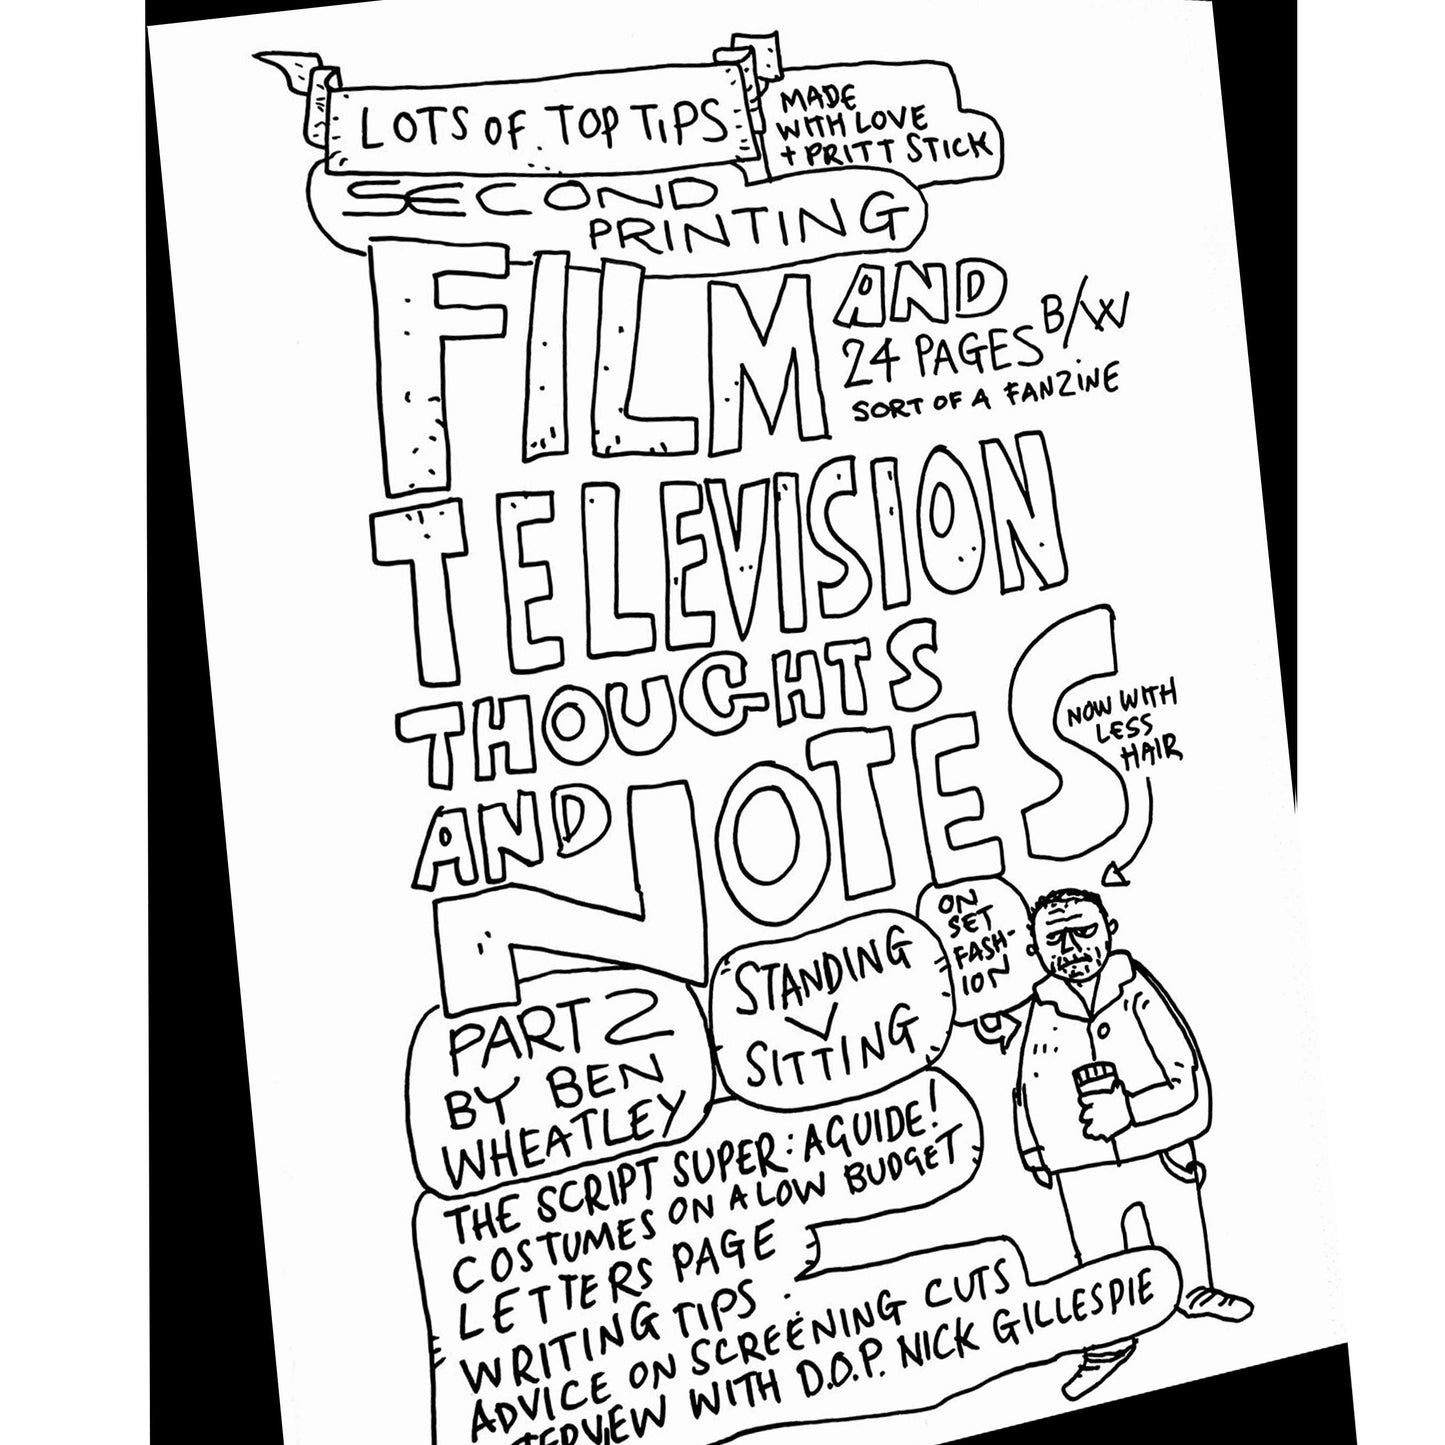 LOTS OF TOP TIPS
MADE
WITH LOVE
+ PRITT STICK
SECOND
PRINTING
FILM AND
24 PAGES B/W
SORT OF A FANZINE
TELEVISION
THOUGHTS
AND NOTES
NOW WITH
LESS
HAIR
ON
SET
FASH-
ION
STANDING
V
SITTING
PART 2
BY BEN
WHEATLEY
THE SCRIPT SUPER: A GUIDE!
COSTUMES ON A LOW BUDGET
LETTERS PAGE
WRITING TIPS
ADVICE ON SCREENING CUTS
INTERVIEW WITH D.O.P. NICK GILLESPIE